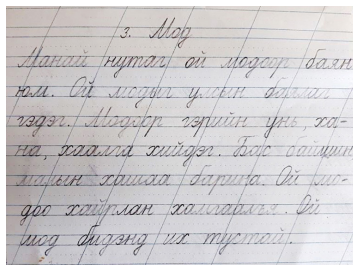 3. Мод
Манай нутаг ой модоор баян
юм. Ой модыг улсын баялаг
гэдэг. Модоор гэрийн унь, ха-
на, хаалга хийдэг. Бас байшин
малын хашаа барина. Ой мо-
доо хайрлан хамгаалъя. Ой
мод бидэнд их тустай.